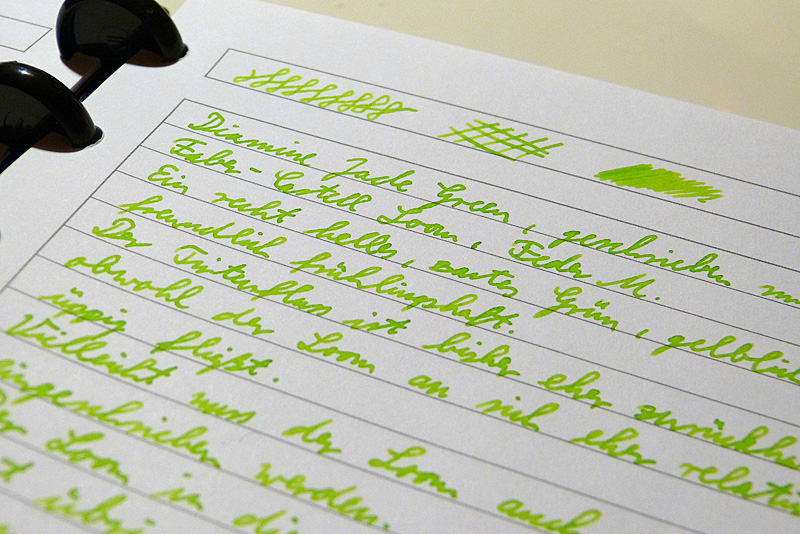 Diamine Jade Green, geschrieben
Faber-Castell Loom, Feder M.
Ein recht helles, zartes Grün, gelblich
freundlich frühlingshaft.
Der Tintenfluss ist bisher eher
obwohl der Loom an sich eher
üppig fließt.
Vielleicht muss der Loom auch
eingeschrieben werden.
Der Loom in